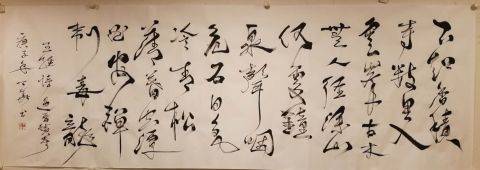 不知香積
寺數里入
雲峰古木
無人徑深山
何處鐘
泉聲咽
危石日色
冷青松
薄暮空潭
曲安禪
制毒龍
王維詩過香積寺
庚子 書